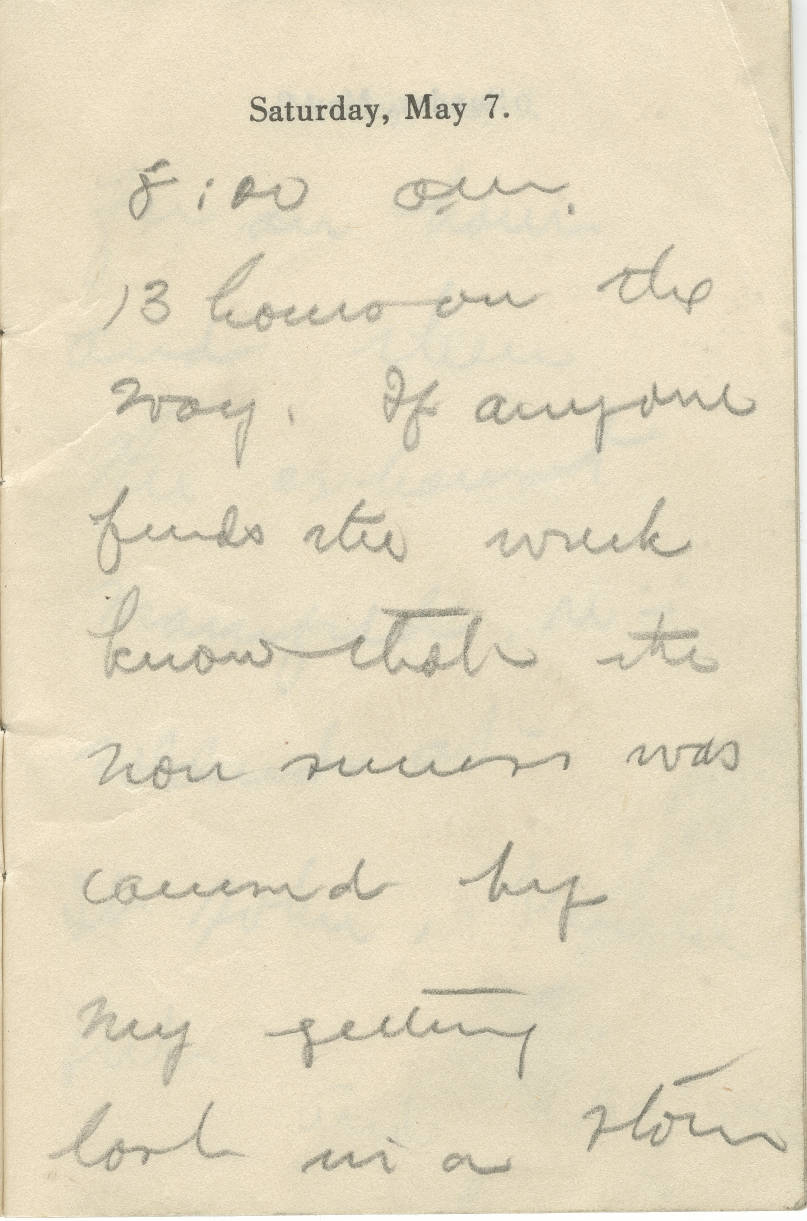 Saturday, May 7.
8:00 am.
13 hours on the
way. If anyone
finds the wreck
know that the
non success was
caused by
my getting
lost in a storm